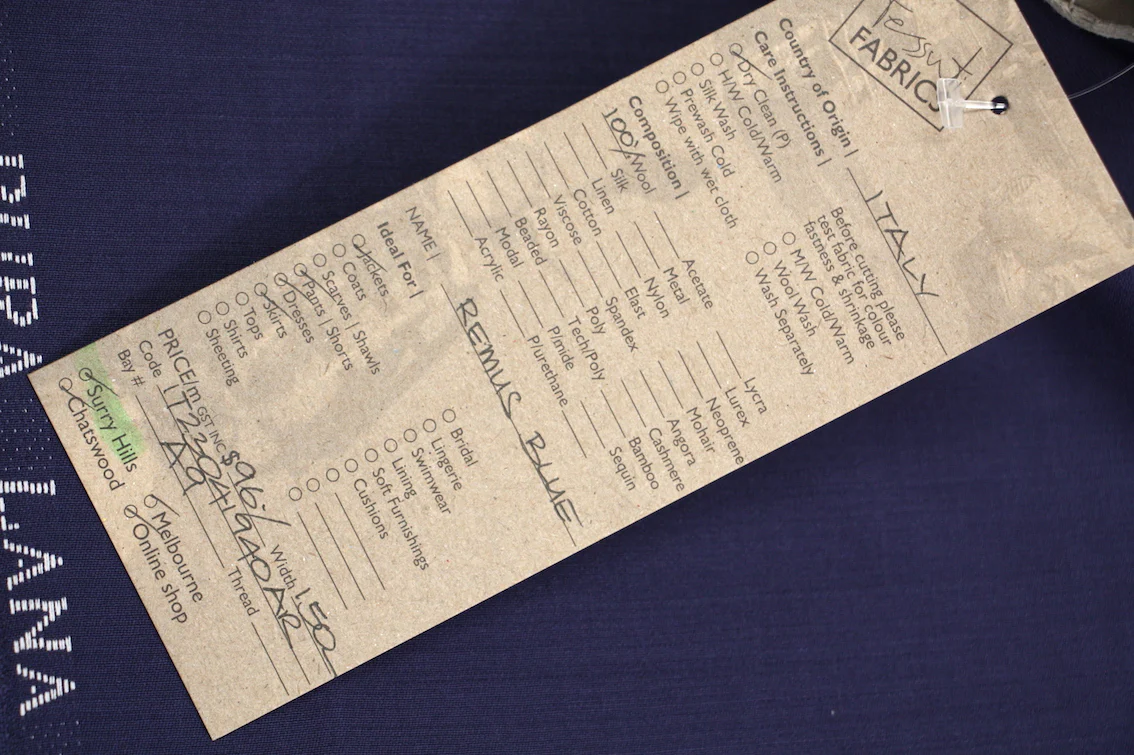 Tessuti
FABRICS
Country of Origin | ITALY
Care Instructions |
Dry Clean (P)
H/W Cold/Warm
Silk Wash
Prewash Cold
Wipe with wet cloth
Before cutting please
test fabric for colour
fastness & shrinkage
M/W Cold/Warm
Wool Wash
Wash Separately
Composition |
100% Wool
Silk
Linen
Cotton
Viscose
Rayon
Beaded
Modal
Acrylic
Acetate
Metal
Nylon
Elast
Spandex
Poly
Tech/Poly
P/mide
P/urethane
Lycra
Lurex
Neoprene
Mohair
Angora
Cashmere
Bamboo
Sequin
NAME | REMUS BLUE
Ideal For |
Jackets
Coats
Scarves | Shawls
Pants | Shorts
Dresses
Skirts
Tops
Shirts
Sheeting
Bridal
Lingerie
Swimwear
Lining
Soft Furnishings
Cushions
PRICE/m GST INC $96.- Width 150
Code
Bay # A9 Thread
Surry Hills
Chatswood
Melbourne
Online shop
PURA LANA